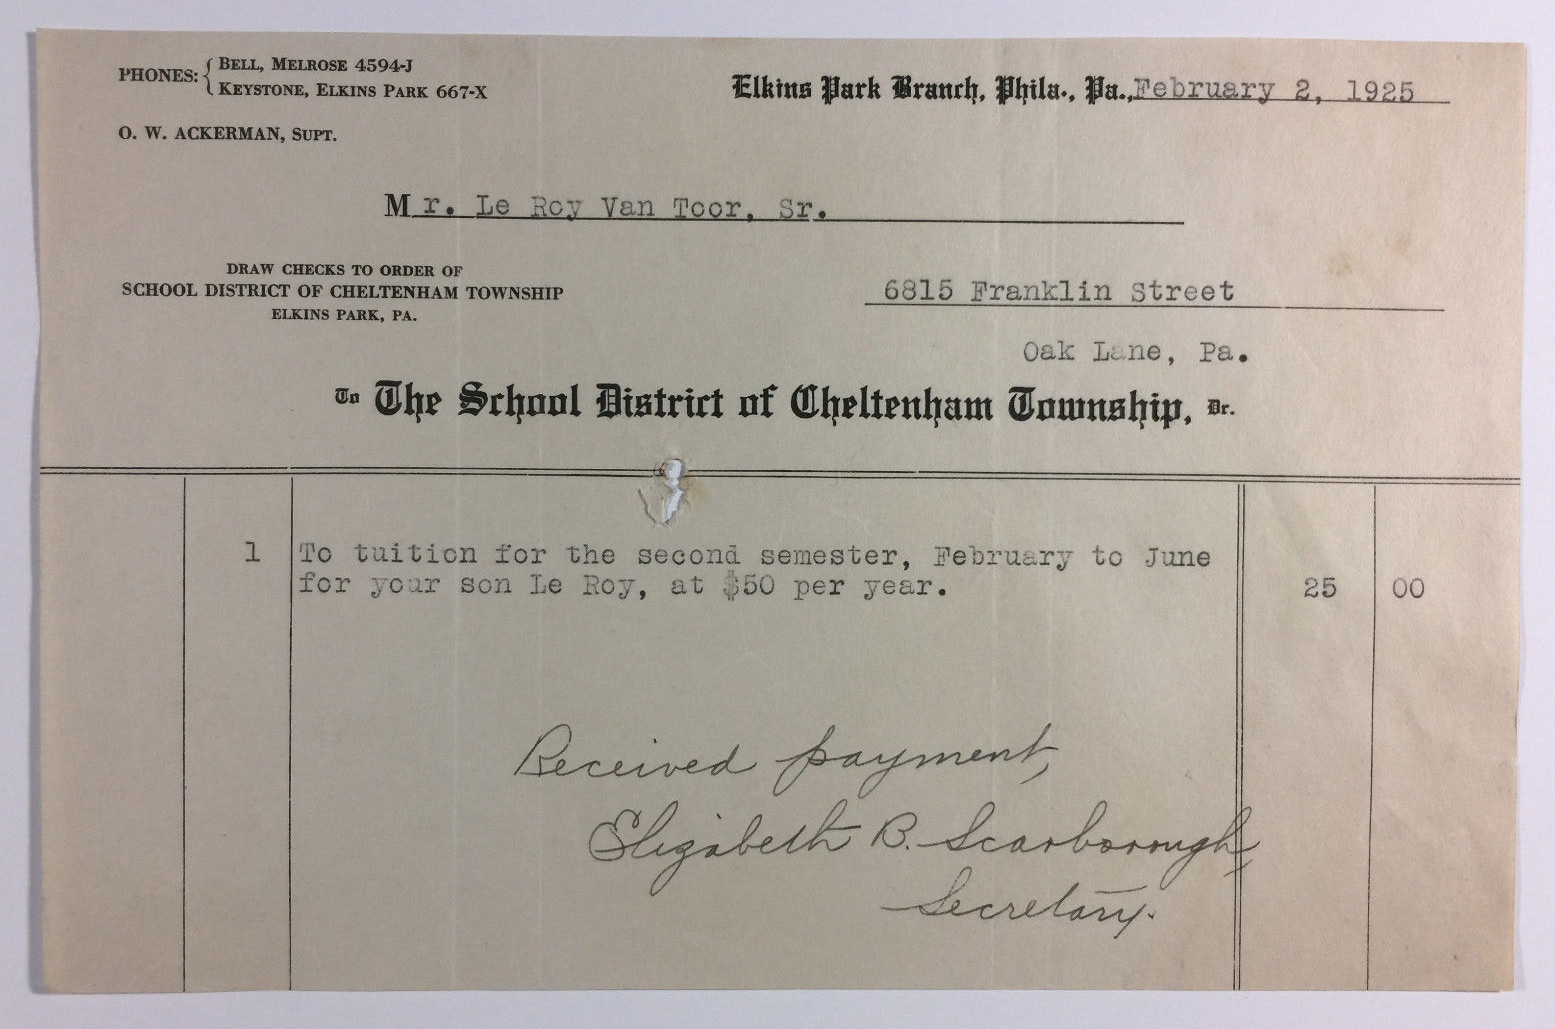 PHONES: { BELL, MELROSE 4594-J
KEYSTONE, ELKINS PARK 667-X
Elkins Park Branch, Phila., Pa., February 2, 1925
O. W. ACKERMAN, SUPT.
Mr. Le Roy Van Toor, Sr.
DRAW CHECKS TO ORDER OF
SCHOOL DISTRICT OF CHELTENHAM TOWNSHIP
ELKINS PARK, PA.
6815 Franklin Street
Oak Lane, Pa.
To The School District of Cheltenham Township, Dr.
1 To tuition for the second semester, February to June
for your son Le Roy, at $50 per year. 25 00
Received payment,
Elizabeth B. Scarborough,
Secretary.